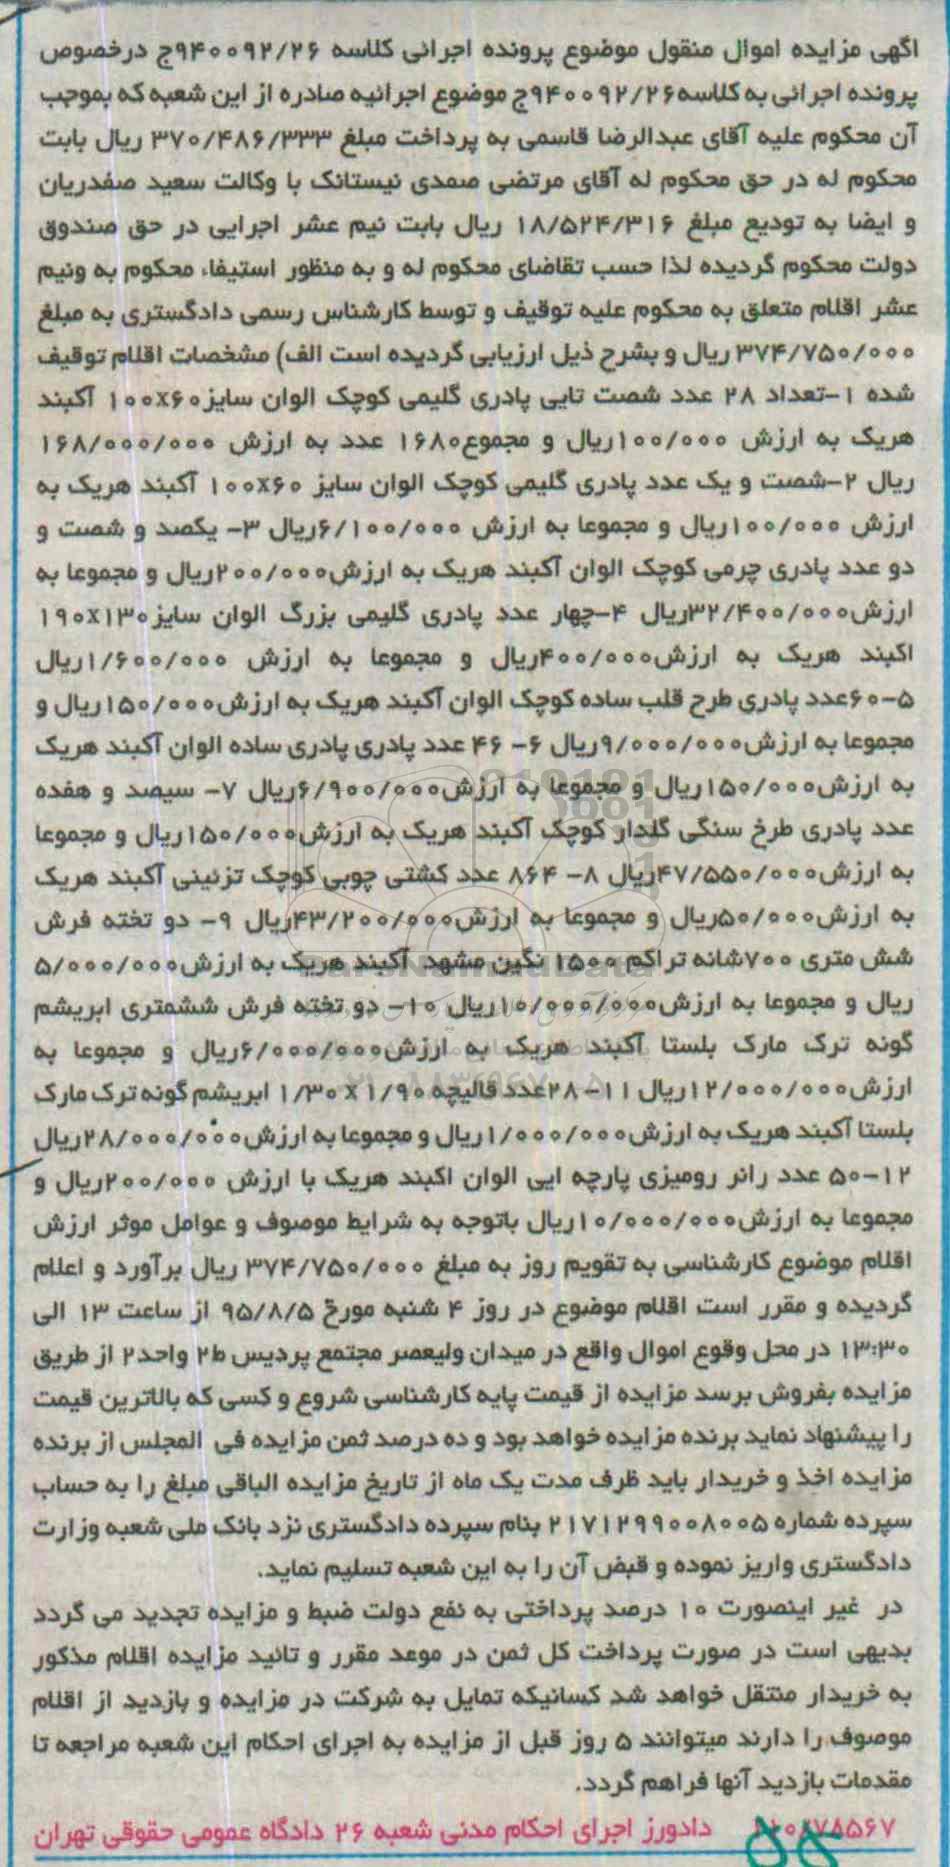 آگهی مزایده اموال منقول موضوع پرونده اجرائی کلاسه ۹۴۰۰۹۲/۲۶ج درخصوص
پرونده اجرائی به کلاسه۹۴۰۰۹۲/۲۶ج موضوع اجرائیه صادره از این شعبه که بموجب
آن محکوم علیه آقای عبدالرضا قاسمی به پرداخت مبلغ ۳۷۰/۴۸۶/۳۳۳ ریال بابت
محکوم له در حق محکوم له آقای مرتضی صمدی نیستانک با وکالت سعید صفدریان
و ایضا به تودیع مبلغ ۱۸/۵۲۴/۳۱۶ ریال بابت نیم عشر اجرایی در حق صندوق
دولت محکوم گردیده لذا حسب تقاضای محکوم له و به منظور استیفاء محکوم به ونیم
عشر اقلام متعلق به محکوم علیه توقیف و توسط کارشناس رسمی دادگستری به مبلغ
۳۷۴/۷۵۰/۰۰۰ ریال و بشرح ذیل ارزیابی گردیده است الف) مشخصات اقلام توقیف
شده ۱-تعداد ۲۸ عدد شصت تایی پادری گلیمی کوچک الوان سایز۱۰۰x۶۰ آکبند
هریک به ارزش ۱۰۰/۰۰۰ریال و مجموع۱۶۸۰ عدد به ارزش ۱۶۸/۰۰۰/۰۰۰
ریال ۲-شصت و یک عدد پادری گلیمی کوچک الوان سایز ۱۰۰x۶۰ آکبند هریک به
ارزش ۱۰۰/۰۰۰ریال و مجموعا به ارزش ۶/۱۰۰/۰۰۰ریال ۳- یکصد و شصت و
دو عدد پادری چرمی کوچک الوان آکبند هریک به ارزش۲۰۰/۰۰۰ریال و مجموعا به
ارزش۳۲/۴۰۰/۰۰۰ریال ۴-چهار عدد پادری گلیمی بزرگ الوان سایز۱۹۰x۱۳۰
اکبند هریک به ارزش۴۰۰/۰۰۰ریال و مجموعا به ارزش ۱/۶۰۰/۰۰۰ریال
۵-۶۰عدد پادری طرح قلب ساده کوچک الوان آکبند هریک به ارزش۱۵۰/۰۰۰ریال و
مجموعا به ارزش۹/۰۰۰/۰۰۰ریال ۶- ۴۶ عدد پادری پادری ساده الوان آکبند هریک
به ارزش۱۵۰/۰۰۰ریال و مجموعا به ارزش۶/۹۰۰/۰۰۰ریال ۷- سیصد و هفده
عدد پادری طرخ سنگی گلدار کوچک آکبند هریک به ارزش۱۵۰/۰۰۰ریال و مجموعا
به ارزش۴۷/۵۵۰/۰۰۰ریال ۸- ۸۶۴ عدد کشتی چوبی کوچک تزئینی آکبند هریک
به ارزش۵۰/۰۰۰ریال و مجموعا به ارزش۴۳/۲۰۰/۰۰۰ریال ۹- دو تخته فرش
شش متری ۷۰۰شانه تراکم ۱۵۰۰ نگین مشهد آکبند هریک به ارزش۵/۰۰۰/۰۰۰
ریال و مجموعا به ارزش۱۰/۰۰۰/۰۰۰ریال ۱۰- دو تخته فرش ششمتری ابریشم
گونه ترک مارک بلستا آکبند هریک به ارزش۶/۰۰۰/۰۰۰ریال و مجموعا به
ارزش۱۲/۰۰۰/۰۰۰ریال ۱۱-۲۸عدد قالیچه ۱/۹۰ x ۱/۳۰ ابریشم گونه ترک مارک
بلستا آکبند هریک به ارزش۱/۰۰۰/۰۰۰ریال و مجموعا به ارزش۲۸/۰۰۰/۰۰۰ریال
۱۲-۵۰ عدد رانر رومیزی پارچه ایی الوان اکبند هریک با ارزش ۲۰۰/۰۰۰ریال و
مجموعا به ارزش۱۰/۰۰۰/۰۰۰ریال باتوجه به شرایط موصوف و عوامل موثر ارزش
اقلام موضوع کارشناسی به تقویم روز به مبلغ ۳۷۴/۷۵۰/۰۰۰ ریال برآورد و اعلام
گردیده و مقرر است اقلام موضوع در روز ۴ شنبه مورخ ۹۵/۸/۵ از ساعت ۱۳ الی
۱۳:۳۰ در محل وقوع اموال واقع در میدان ولیعصر مجتمع پردیس ط۲ واحد۲ از طریق
مزایده بفروش برسد مزایده از قیمت پایه کارشناسی شروع و کسی که بالاترین قیمت
را پیشنهاد نماید برنده مزایده خواهد بود و ده درصد ثمن مزایده فی المجلس از برنده
مزایده اخذ و خریدار باید ظرف مدت یک ماه از تاریخ مزایده الباقی مبلغ را به حساب
سپرده شماره ۲۱۷۱۲۹۹۰۰۸۰۰۵ بنام سپرده دادگستری نزد بانک ملی شعبه وزارت
دادگستری واریز نموده و قبض آن را به این شعبه تسلیم نماید.
در غیر اینصورت ۱۰ درصد پرداختی به نفع دولت ضبط و مزایده تجدید می گردد
بدیهی است در صورت پرداخت کل ثمن در موعد مقرر و تائید مزایده اقلام مذکور
به خریدار منتقل خواهد شد کسانیکه تمایل به شرکت در مزایده و بازدید از اقلام
موصوف را دارند میتوانند ۵ روز قبل از مزایده به اجرای احکام این شعبه مراجعه تا
مقدمات بازدید آنها فراهم گردد.
دادورز اجرای احکام مدنی شعبه ۲۶ دادگاه عمومی حقوقی تهران